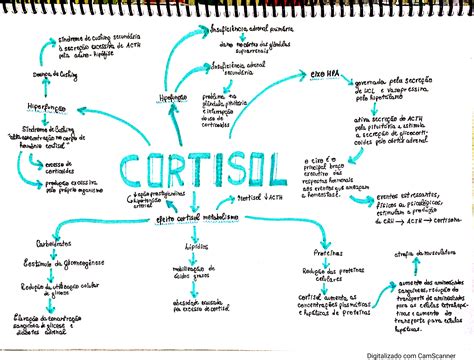 síndrome de cushing secundária
à secreção excessiva de ACTH
pela adeno-hipófise
Doença de Cushing
Hiperfunção
Síndrome de Cushing
"alta concentração no corpo de
hormônio cortisol"
excesso de
corticoides
produção excessiva
pelo próprio
organismo
Insuficiência adrenal primária
dano no córtex das glândulas
suprarrenais
Insuficiência adrenal
secundária
Hipofunção
problema na
glândula pituitária
e interrupção
do uso de
corticoides
eixo HPA
governado pela secreção
de
e vasopressina
pelo hipotálamo
ativa secreção do ACTH
pela pituitária e estimula
a secreção de glicocorti-
coides pelo córtex adrenal
o eixo é o
principal braço
executivo das
respostas hormonais
aos eventos que ameaçam
a homeostase.
eventos estressantes,
físicos ou psicológicos,
estimulam a produção
de CRH → ACTH → Cortisona
CORTISOL
↓ação prostaglandinas
↑hipertensão
arterial
↑cortisol ↓ACTH
efeito cortisol metabolismo
Carboidratos
Estímulo da Gliconeogênese
Redução da utilização celular
de glicose
Elevação da concentração
sanguínea de glicose e
diabetes adrenal
Lipídios
mobilização de
ácidos graxos
obesidade causada
por excesso de cortisol
Proteínas
Redução das proteínas
celulares
Cortisol aumenta as
concentrações plasmáticas
e hepáticas de proteínas
atrofia da musculatura
aumento dos aminoácidos
sanguíneos, redução do
transporte de aminoácidos
para as células extra-
hepáticas e aumento do
transporte para células
hepáticas.
Digitalizado com CamScanner